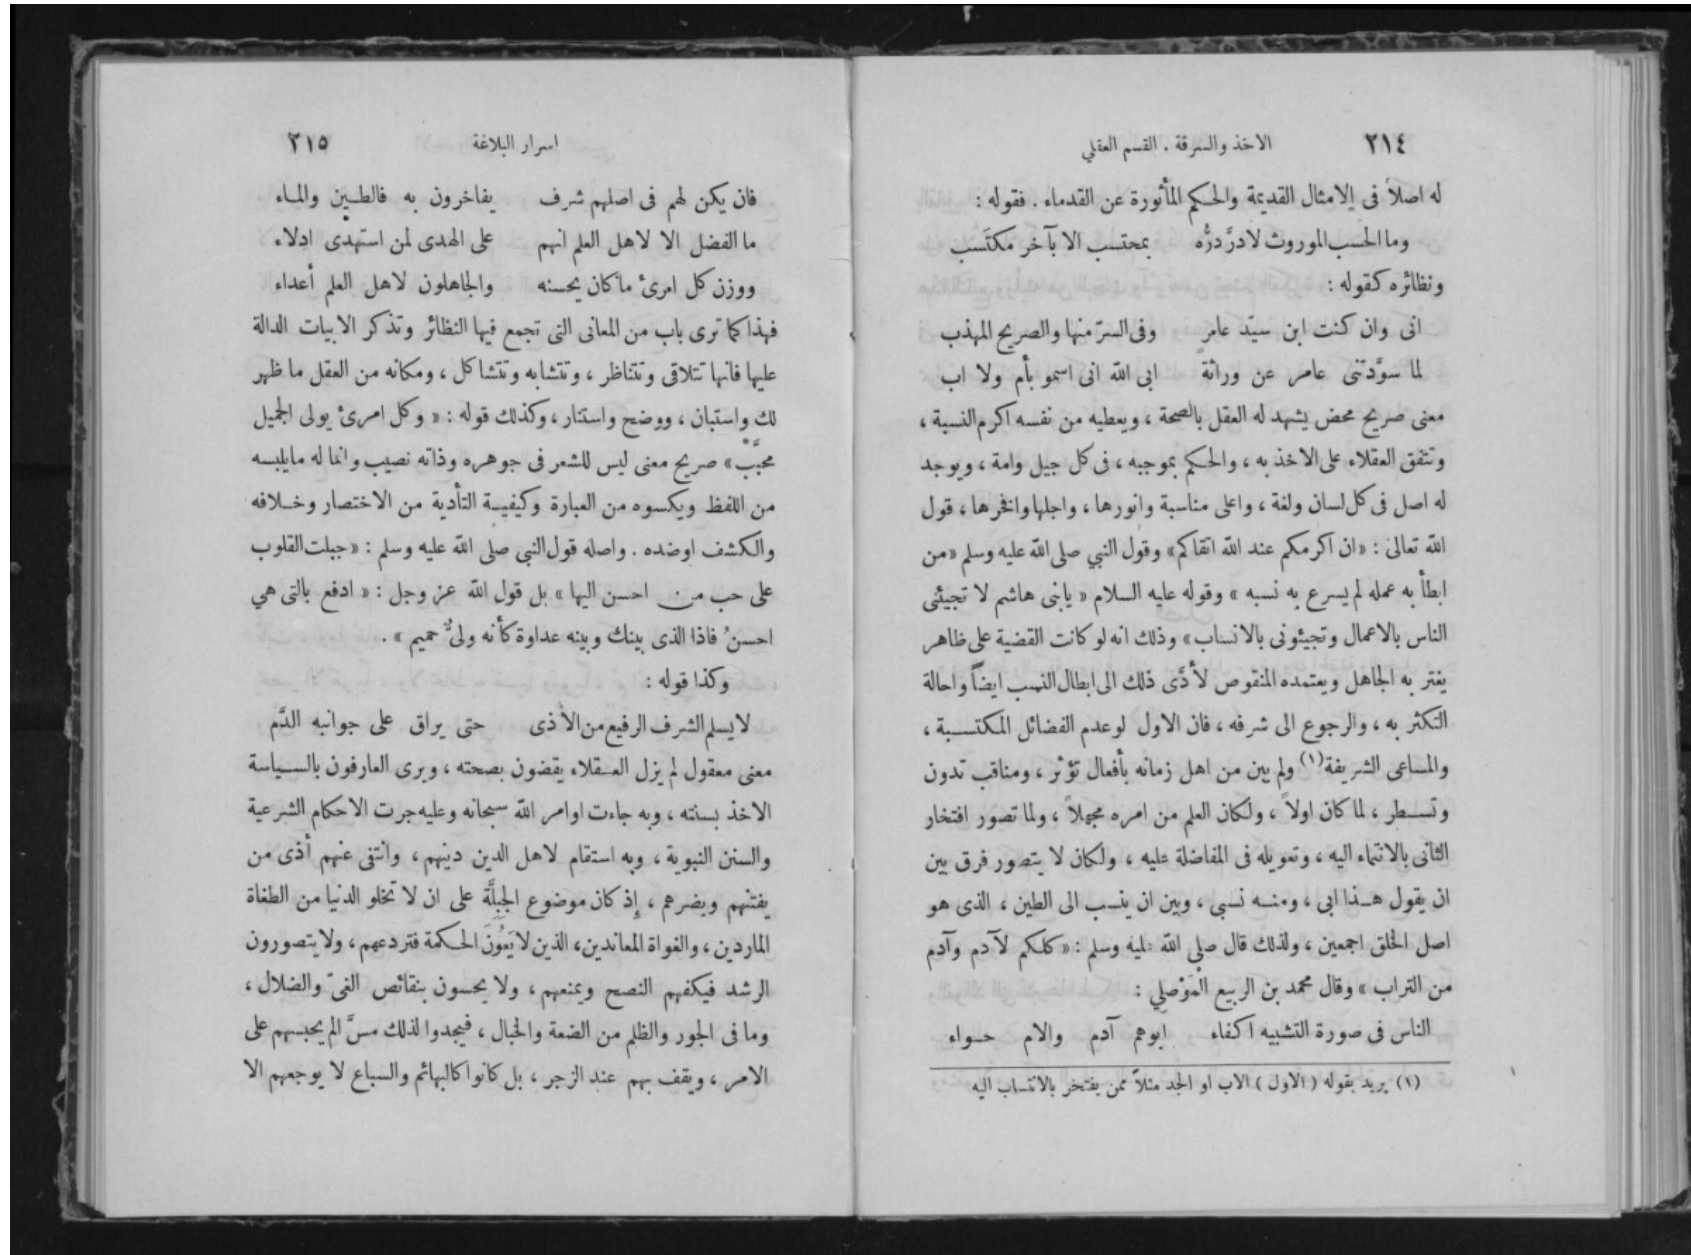 ٢١٤ الاخذ والسرقة . القسم العقلي
له اصلاً فى الامثال القديمة والحكم المأثورة عن القدماء . فقوله :
وما الحسب الموروث لا درَّ درُّه بمحتسب الا بآخر مكتَسب
ونظائره كقوله :
انى وان كنت ابن سيّد عامرٍ وفى السرّ منها والصريح المهذب
لما سوَّدتنى عامر عن وراثة ابى الله انى اسمو بأم ولا اب
معنى صريح محض يشهد له العقل بالصحة ، ويعطيه من نفسه اكرم النسبة ،
وتتفق العقلاء على الاخذ به ، والحكم بموجبه ، فى كل جيل وامة ، ويوجد
له اصل فى كل لسان ولغة ، واعلى مناسبة وانورها ، واجلها وافخرها ، قول
الله تعالى : «ان اكرمكم عند الله اتقاكم» وقول النبي صلى الله عليه وسلم «من
ابطأ به عمله لم يسرع به نسبه » وقوله عليه السلام « يابنى هاشم لا تجيئنى
الناس بالاعمال وتجيئونى بالانساب» وذلك انه لو كانت القضية على ظاهر
يغتر به الجاهل ويعتمده المنقوص لأدَّى ذلك الى ابطال النسب ايضاً واحالة
التكثر به ، والرجوع الى شرفه ، فان الاول لو عدم الفضائل المكتسبة ،
والمساعى الشريفة(١) ولم يبن من اهل زمانه بأفعال تؤثر ، ومناقب تدون
وتسطر ، لما كان اولاً ، ولكان العلم من امره مجهلاً ، ولما تصور افتخار
الثانى بالانتماء اليه ، وتعويله فى المفاضلة عليه ، ولكان لا يتصور فرق بين
ان يقول هذا ابى ، ومنه نسبى ، وبين ان ينسب الى الطين ، الذى هو
اصل الخلق اجمعين ، ولذلك قال صلى الله عليه وسلم : « كلكم لآدم وآدم
من التراب » وقال محمد بن الربيع الْمَوْصلِي :
الناس فى صورة التشبيه اكفاء ابوهم آدم والام حواء
(١) يريد بقوله ( الاول ) الاب او الجد مثلاً ممن يفتخر بالانتساب اليه
اسرار البلاغة ٢١٥
فان يكن لهم فى اصلهم شرف يفاخرون به فالطين والماء
ما الفضل الا لاهل العلم انهم على الهدى لمن استهدى ادلاء
ووزن كل امرئ ما كان يحسنه والجاهلون لاهل العلم أعداء
فهذا كما ترى باب من المعانى التى تجمع فيها النظائر وتذكر الابيات الدالة
عليها فانها تتلاقى وتتناظر ، وتتشابه وتتشاكل ، ومكانه من العقل ما ظهر
لك واستبان ، ووضح واستنار ، وكذلك قوله : « وكل امرئ يولى الجميل
محبَّبٌ» صريح معنى ليس للشعر فى جوهره وذاته نصيب وانما له مايلبسه
من اللفظ ويكسوه من العبارة وكيفية التأدية من الاختصار وخلافه
والكشف او ضده . واصله قول النبى صلى الله عليه وسلم : «جبلت القلوب
على حب من احسن اليها » بل قول الله عز وجل : « ادفع بالتى هي
احسنُ فاذا الذى بينك وبينه عداوة كأنه ولىٌّ حميم » .
وكذا قوله :
لا يسلم الشرف الرفيع من الأذى حتى يراق على جوانبه الدَّم
معنى معقول لم يزل العقلاء يقضون بصحته ، ويرى العارفون بالسياسة
الاخذ بسنته ، وبه جاءت اوامر الله سبحانه وعليه جرت الاحكام الشرعية
والسنن النبوية ، وبه استقام لاهل الدين دينهم ، وانتفى عنهم أذى من
يفتنهم ويضرهم ، إذ كان موضوع الجِبِلَّة على ان لا تخلو الدنيا من الطغاة
الماردين ، والغواة المعاندين، الذين لا يَعُونَ الحكمة فتردعهم ، ولا يتصورون
الرشد فيكفهم النصح ويمنعهم ، ولا يحسون بنقائص الغىّ والضلال ،
وما فى الجور والظلم من الضعة والخبال ، فيجدوا لذلك مسَّ الم يحبسهم على
الامر ، ويقف بهم عند الزجر ، بل كانوا كالبهائم والسباع لا يوجعهم الا